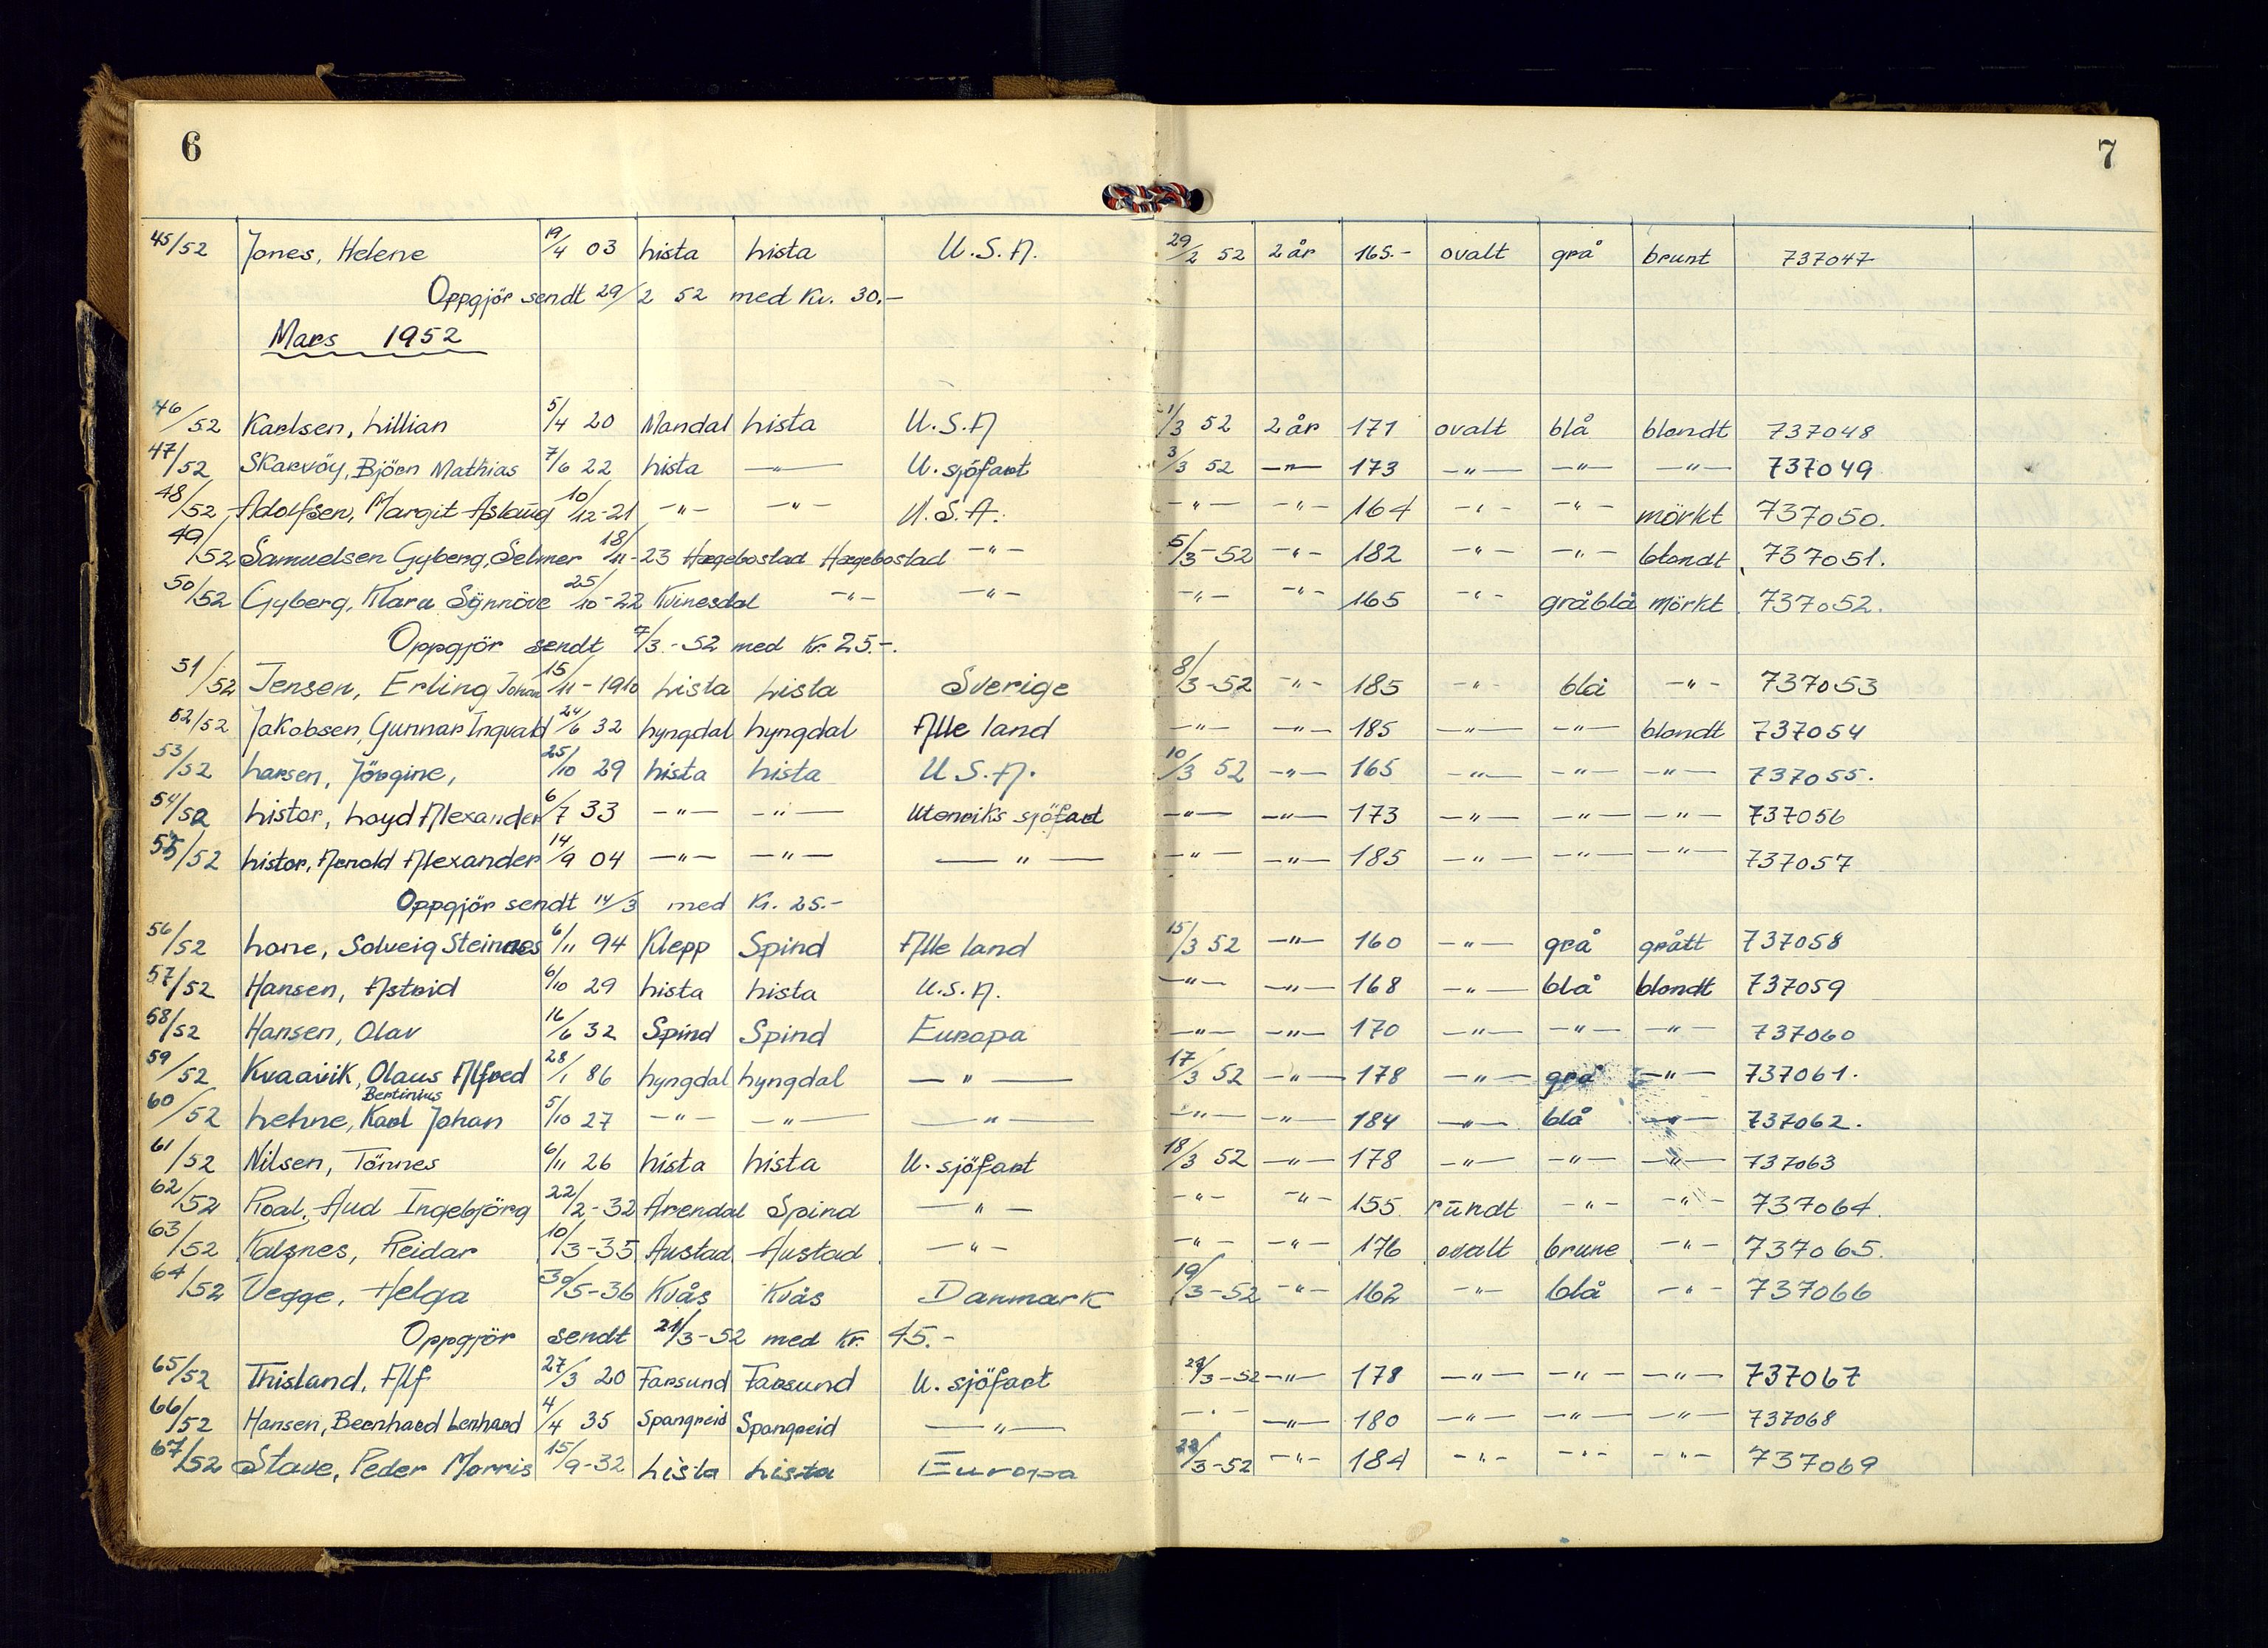 6
7
45/52 Jones, Helene 19/4 03 Lista Lista U.S.A. 29/2 52 2 år 165.- ovalt grå brunt 737047
Oppgjör sendt 29/2 52 med Kr. 30.-
Mars 1952
46/52 Karlsen, Lillian 5/4 20 Mandal Lista U.S.A 1/3 52 2 år 171 ovalt blå blondt 737048
47/52 Skarvöy, Björn Mathias 7/6 22 Lista -"- U. sjöfart 3/3 52 -"- 173 -"- -"- -"- 737049
48/52 Adolfsen, Margit Aslaug 10/12-21 -"- -"- U.S.A. -"- -"- 164 -"- -"- mörkt 737050.
49/52 Samuelsen Gyberg, Selmer 18/11-23 Hægebostad Hægebostad -"- 5/3-52 -"- 182 -"- -"- blondt 737051.
50/52 Gyberg, Klara Synnöve 25/10-22 Kvinesdal -"- -"- -"- -"- 165 -"- gråblå mörkt 737052.
Oppgjör sendt 7/3.-52 med Kr. 25.-.
51/52 Jensen, Erling Johan 15/11-1910 Lista Lista Sverige 8/3-52 -"- 185 -"- blå -"- 737053
52/52 Jakobsen, Gunnar Ingvald 24/6 32 Lyngdal Lyngdal Alle land -"- -"- 185 -"- -"- blondt 737054
53/52 Larsen, Jörgine, 25/10 29 Lista Lista U.S.A. 10/3 52 -"- 165 -"- -"- -"- 737055.
54/52 Listor, Loyd Alexander 6/7 33 -"- -"- Utenriks sjöfart -"- -"- 173 -"- -"- -"- 737056
55/52 Listor, Arnold Alexander 14/9 04 -"- -"- -"- -"- -"- 185 -"- -"- -"- 737057
Oppgjör sendt 14/3 med Kr. 25.-
56/52 Lone, Solveig Steinnes 6/11 94 Klepp Spind Alle land 15/3 52 -"- 160 -"- grå grått 737058
57/52 Hansen, Astrid 6/10 29 Lista Lista U.S.A. -"- -"- 168 -"- blå blondt 737059
58/52 Hansen, Olav 16/6 32 Spind Spind Europa -"- -"- 170 -"- -"- -"- 737060
59/52 Kvaavik, Olaus Alfred 28/1 86 Lyngdal Lyngdal -"- 17/3 52 -"- 178 -"- grå -"- 737061.
Bertinius
60/52 Lehne, Karl Johan 5/10 27 -"- -"- -"- -"- -"- 184 -"- blå -"- 737062.
61/52 Nilsen, Tönnes 6/11 26 Lista Lista U. sjöfart 18/3 52 -"- 178 -"- -"- -"- 737063
62/52 Roal, Aud Ingebjörg 22/2-32 Arendal Spind -"- -"- -"- 155 rundt -"- -"- 737064.
63/52 Kalsnes, Reidar 10/3-35 Austad Austad -"- -"- -"- 176 ovalt brune -"- 737065.
64/52 Vegge, Helga 30/5-36 Kvås Kvås Danmark 19/3-52 -"- 162 -"- blå -"- 737066
Oppgjör sendt 21/3-52 med Kr. 45.-
65/52 Thisland, Alf 27/3 20 Farsund Farsund U. sjöfart 22/3-52 -"- 178 -"- -"- -"- 737067
66/52 Hansen, Bernhard Lenhard 4/4 35 Spangreid Spangreid -"- -"- -"- 180 -"- -"- -"- 737068
67/52 Stave, Peder Morris 15/9-32 Lista Lista Europa 22/3-52 -"- 184 -"- -"- -"- 737069